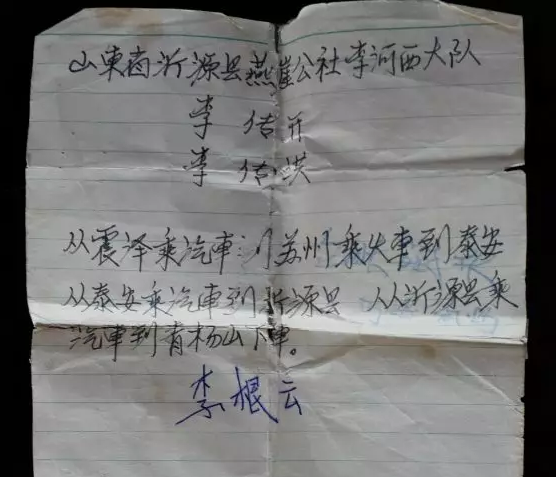 山東省沂源县燕崖公社李河西大队
李传开
李传洪
从震泽乘汽車到苏州乘火車到泰安
从泰安乘汽車到沂源县 从沂源县乘
汽車到青杨山下車。
李根云